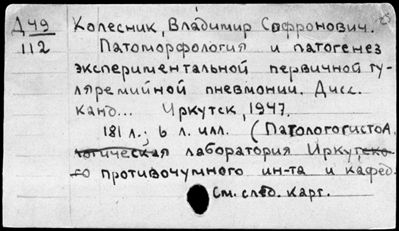 Д 49 Колесник, Владимир Софронович.
112 Патоморфология и патогенез
экспериментальной первичной ту-
ляремийной пневмонии. Дисс.
канд... Иркутск, 1947.
181 л.; 6 л. илл. (Патологогистол.
лаборатория Иркутско-
го противочумного ин-та и кафед.
См. след. карт.